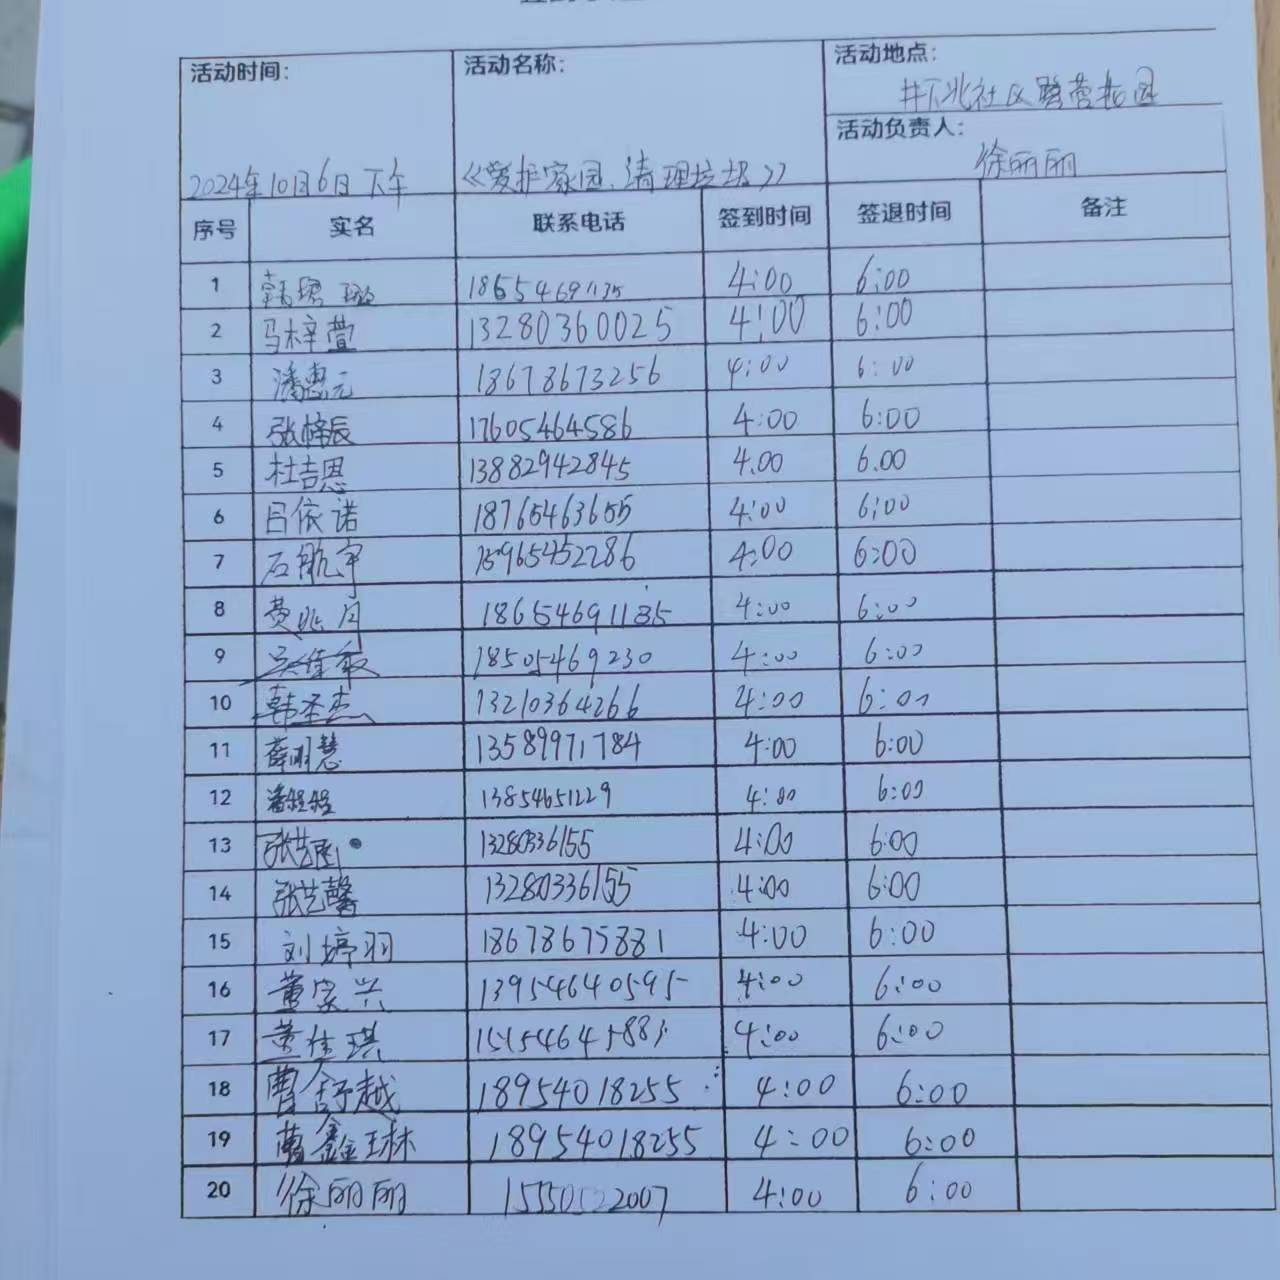 活动时间：
2024年10月6日下午
活动名称：
《爱护家园、清理垃圾》
活动地点：
井下北社区
活动负责人：
徐丽丽
序号 实名 联系电话 签到时间 签退时间 备注
1 韩 18654691135 4:00 6:00
2 马梓萱 13280360025 4:00 6:00
3 潘惠元 18678673256 4:00 6:00
4 张 辰 17605464586 4:00 6:00
5 杜吉恩 13882942845 4.00 6.00
6 吕依诺 18765463655 4:00 6:00
7 石航宇 15965452286 4:00 6:00
8 费兆月 18654691135 4:00 6:00
9 18505469230 4:00 6:00
10 韩圣杰 13210364266 4:00 6:00
11 薛明慧 13589971784 4:00 6:00
12 潘程程 13854651229 4:00 6:00
13 张艺 1328036155 4:00 6:00
14 张艺馨 13280336155 4:00 6:00
15 刘婷羽 18678675881 4:00 6:00
16 董家兴 13954640595 4:00 6:00
17 董佳琪 4:00 6:00
18 曹舒越 18954018255 4:00 6:00
19 曹鑫琳 18954018255 4:00 6:00
20 徐丽丽 15550522007 4:00 6:00